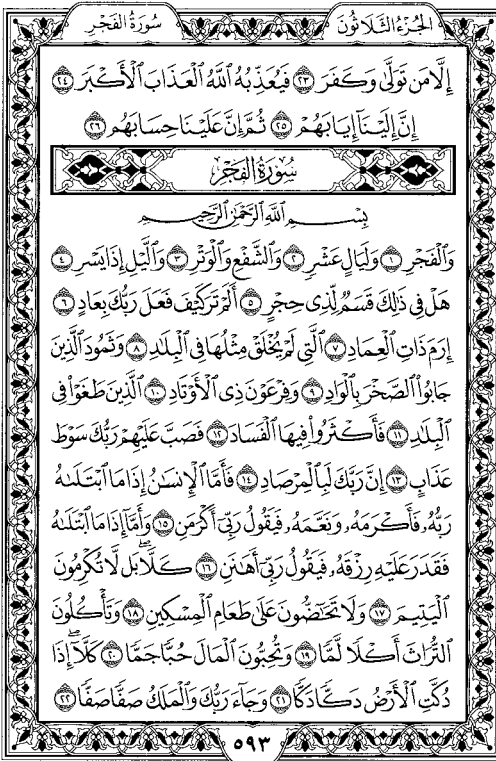 الجُزْءُ الثَّلَاثُونَ سُورَةُ الفَجْرِ
إِلَّا مَن تَوَلَّىٰ وَكَفَرَ ٢٣ فَيُعَذِّبُهُ ٱللَّهُ ٱلْعَذَابَ ٱلْأَكْبَرَ ٢٤
إِنَّ إِلَيْنَآ إِيَابَهُمْ ٢٥ ثُمَّ إِنَّ عَلَيْنَا حِسَابَهُم ٢٦
سُورَةُ الفَجْرِ
بِسْمِ ٱللَّهِ ٱلرَّحْمَٰنِ ٱلرَّحِيمِ
وَٱلْفَجْرِ ١ وَلَيَالٍ عَشْرٍ ٢ وَٱلشَّفْعِ وَٱلْوَتْرِ ٣ وَٱلَّيْلِ إِذَا يَسْرِ ٤
هَلْ فِى ذَٰلِكَ قَسَمٌ لِّذِى حِجْرٍ ٥ أَلَمْ تَرَ كَيْفَ فَعَلَ رَبُّكَ بِعَادٍ ٦
إِرَمَ ذَاتِ ٱلْعِمَادِ ٧ ٱلَّتِى لَمْ يُخْلَقْ مِثْلُهَا فِى ٱلْبِلَٰدِ ٨ وَثَمُودَ ٱلَّذِينَ
جَابُوا۟ ٱلصَّخْرَ بِٱلْوَادِ ٩ وَفِرْعَوْنَ ذِى ٱلْأَوْتَادِ ١٠ ٱلَّذِينَ طَغَوْا۟ فِى
ٱلْبِلَٰدِ ١١ فَأَكْثَرُوا۟ فِيهَا ٱلْفَسَادَ ١٢ فَصَبَّ عَلَيْهِمْ رَبُّكَ سَوْطَ
عَذَابٍ ١٣ إِنَّ رَبَّكَ لَبِٱلْمِرْصَادِ ١٤ فَأَمَّا ٱلْإِنسَٰنُ إِذَا مَا ٱبْتَلَىٰهُ
رَبُّهُۥ فَأَكْرَمَهُۥ وَنَعَّمَهُۥ فَيَقُولُ رَبِّىٓ أَكْرَمَنِ ١٥ وَأَمَّآ إِذَا مَا ٱبْتَلَىٰهُ
فَقَدَرَ عَلَيْهِ رِزْقَهُۥ فَيَقُولُ رَبِّىٓ أَهَٰنَنِ ١٦ كَلَّاۖ بَل لَّا تُكْرِمُونَ
ٱلْيَتِيمَ ١٧ وَلَا تَحَٰٓضُّونَ عَلَىٰ طَعَامِ ٱلْمِسْكِينِ ١٨ وَتَأْكُلُونَ
ٱلتُّرَاثَ أَكْلًا لَّمًّا ١٩ وَتُحِبُّونَ ٱلْمَالَ حُبًّا جَمًّا ٢٠ كَلَّآۖ إِذَا
دُكَّتِ ٱلْأَرْضُ دَكًّا دَكًّا ٢١ وَجَآءَ رَبُّكَ وَٱلْمَلَكُ صَفًّا صَفًّا ٢٢
٥٩٣